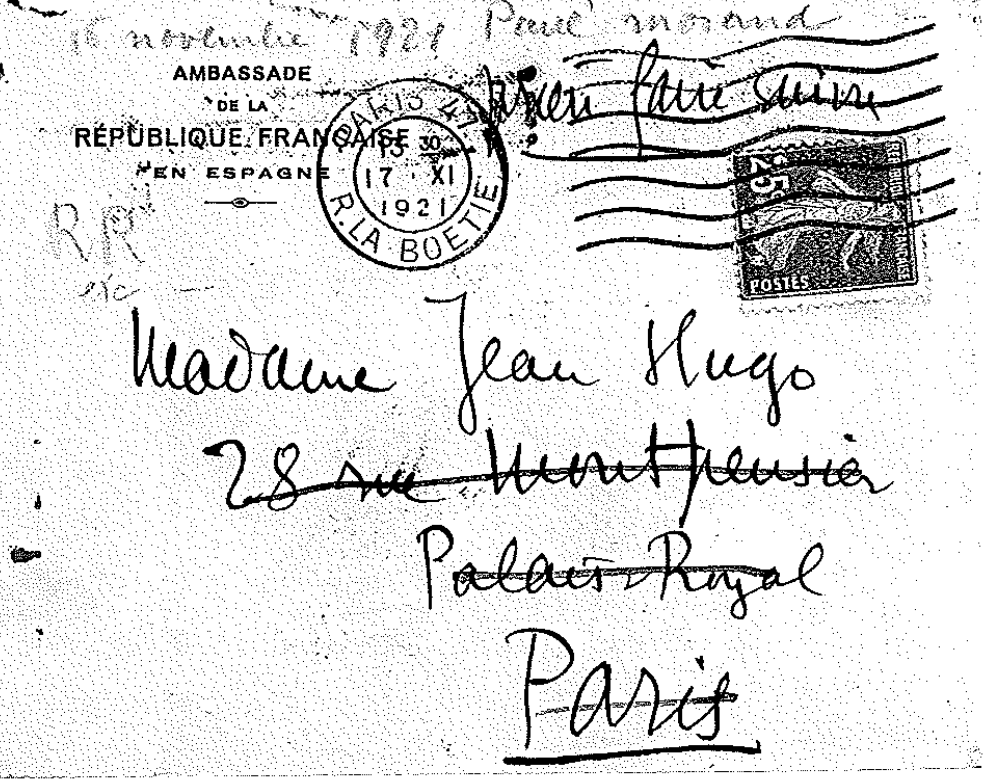 16 novembre 1921 Paul Morand
AMBASSADE
DE LA
RÉPUBLIQUE FRANÇAISE
EN ESPAGNE
faire suivre
PARIS
13 30
17 XI
1921
R. LA BOETIE
25
POSTES
FRANÇAISE
RR
Madame Jean Hugo
28 rue Montpensier
Palais-Royal
Paris